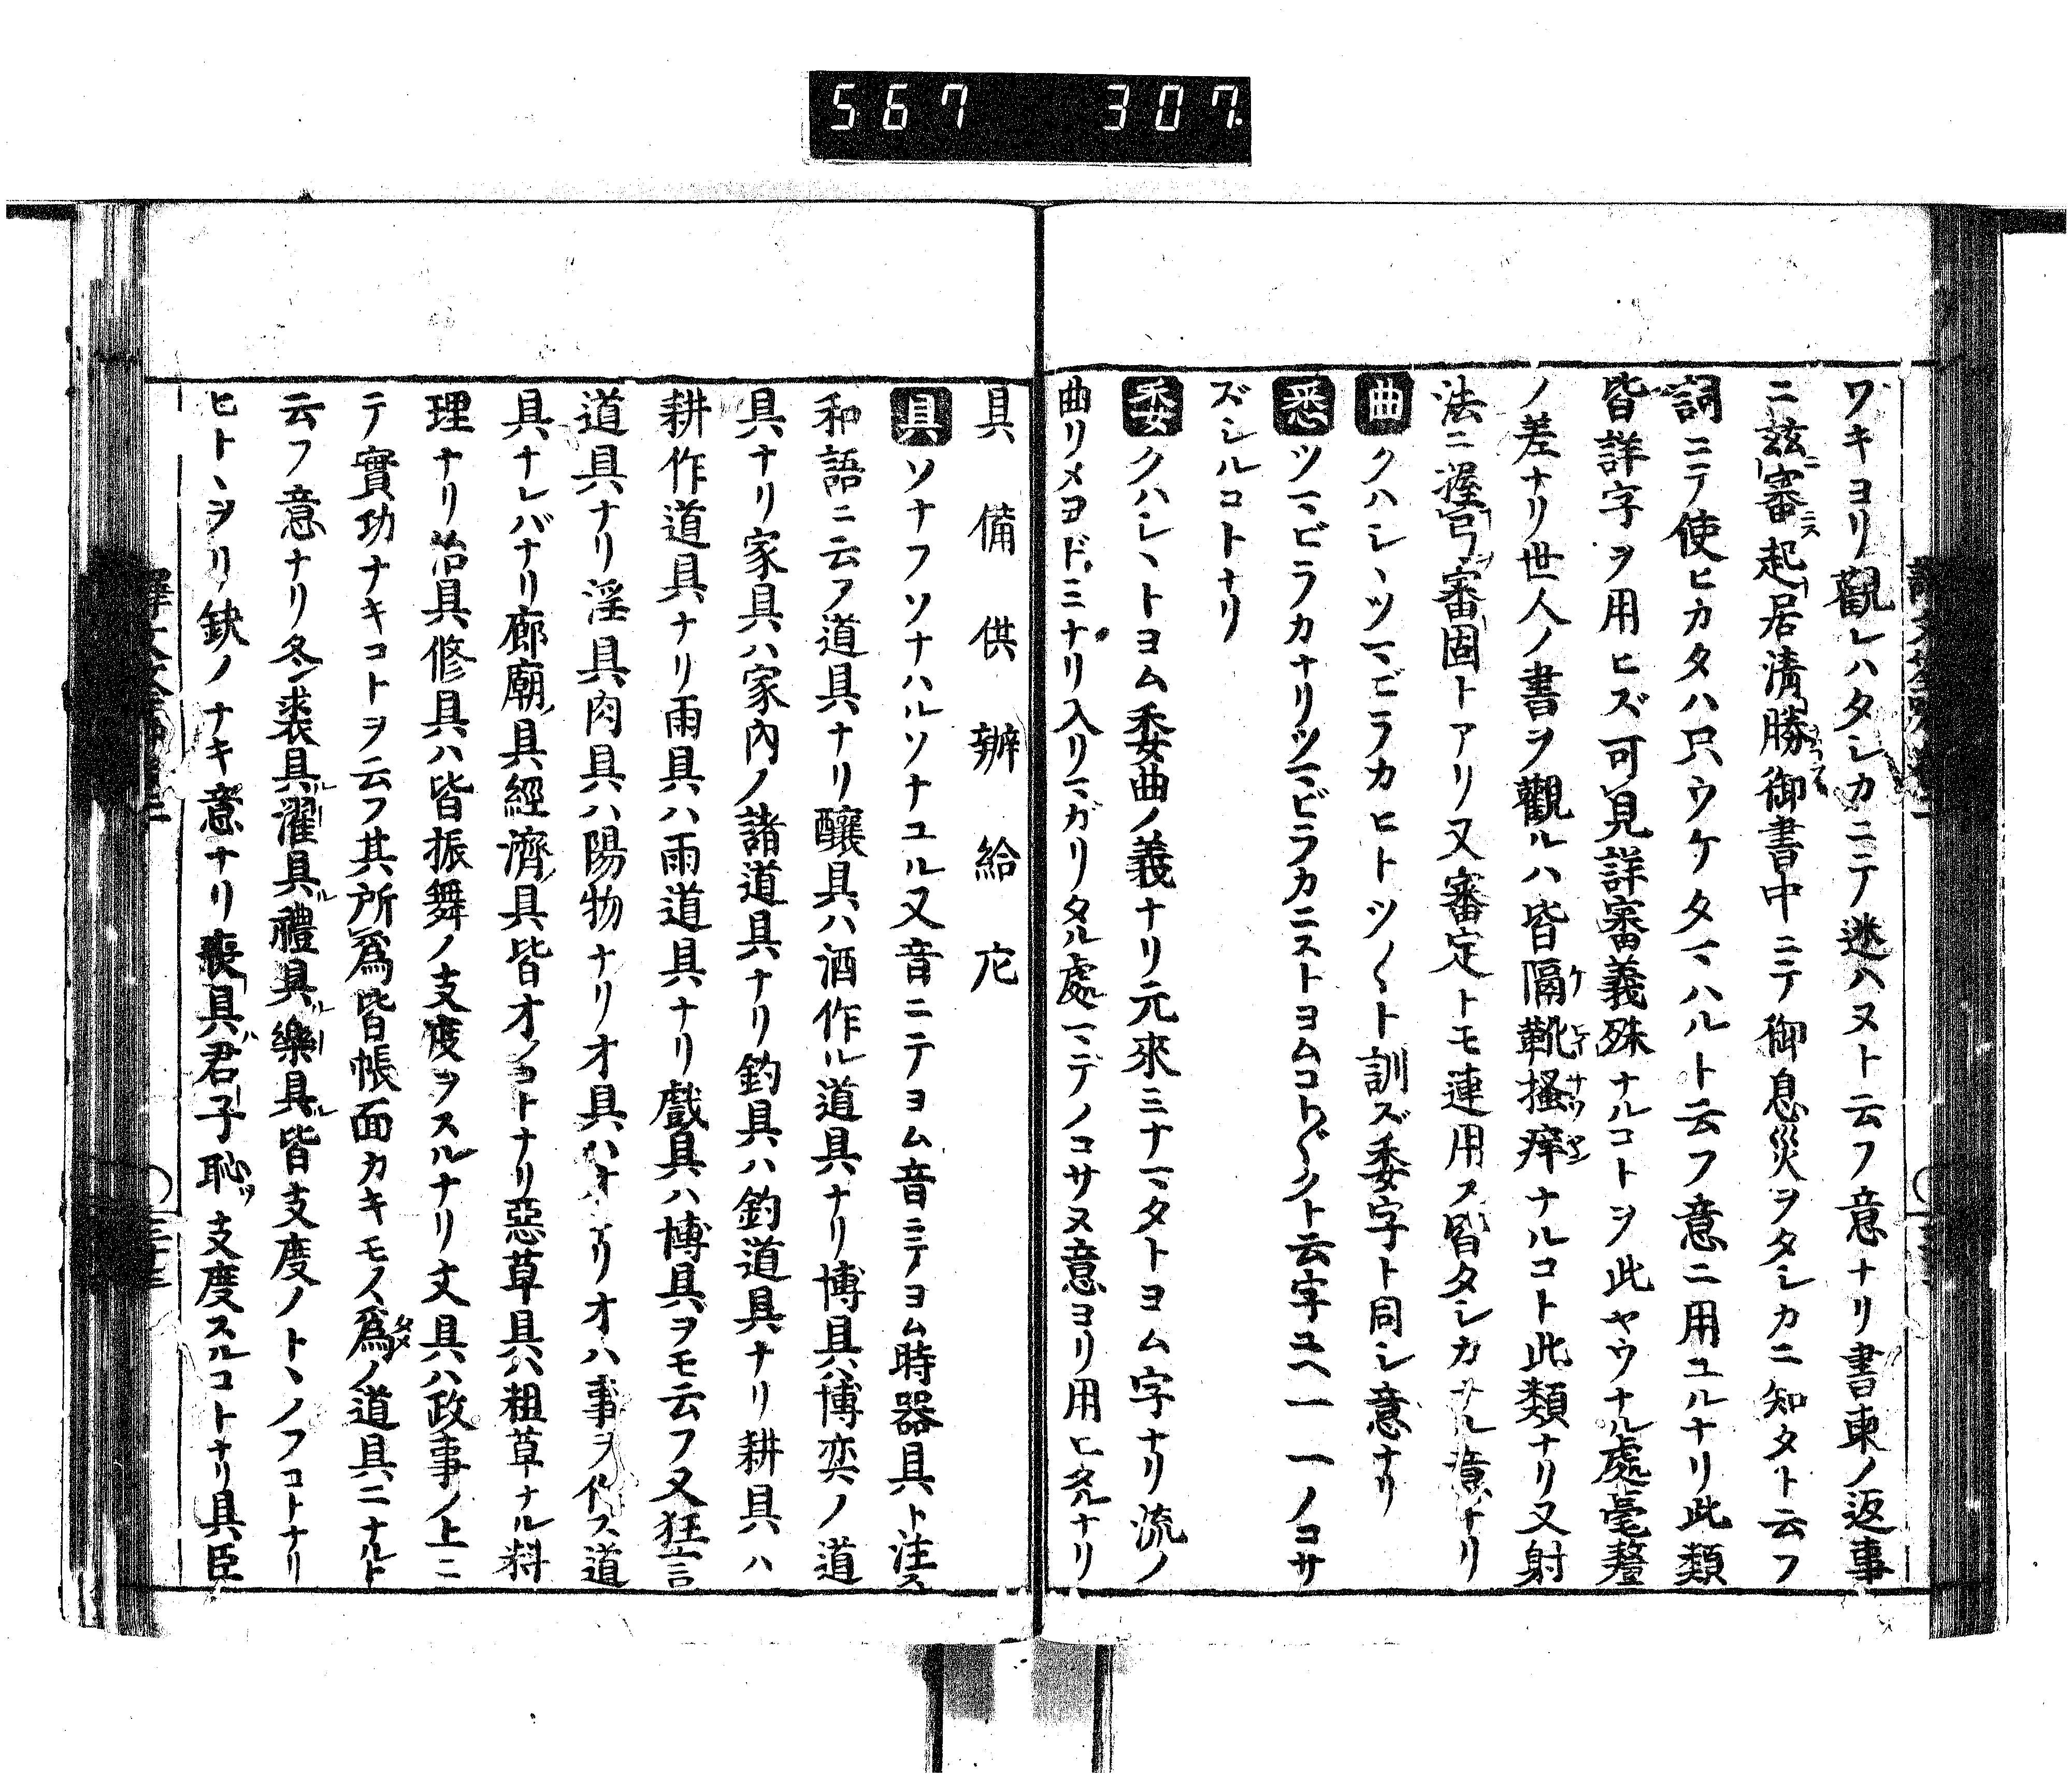 567 307
ワキヨリ觀レハタシカニテ迷ハヌト云フ意ナリ書柬ノ返事
ニ茲審ニス起居清勝御書中ニテ御息災ヲタシカニ知タト云フ
詞ニテ使ヒカタハ只ウケタマハルト云フ意ニ用ユルナリ此類
皆詳字ヲ用ヒズ可見詳審義殊ナルコトヲ此ヤウナル處毫釐
ノ差ナリ世人ノ書ヲ觀ルハ皆隔靴搔痒ナルコト此類ナリ又射
法ニ握弓審固トアリ又審定トモ連用ス皆タシカナル意ナリ
曲クハシヽツマビラカヒトツ〱ト訓ズ委字ト同シ意ナリ
悉ツマビラカナリツマビラカニストヨムコト〲クト云字ユヘ一一ノコサ
ズシルコトナリ
委クハシヽトヨム委曲ノ義ナリ元來ミナマタトヨム字ナリ流ノ
曲リメヨドミナリ入リマガリタル處マテノコサヌ意ヨリ用ヒタルナリ
具 備 供 辦 給 庀
具ソナフソナハルソナユル又音ニテヨム音ニテヨム時器具ト注ス
和語ニ云フ道具ナリ釀具ハ酒作ル道具ナリ博具ハ博奕ノ道
具ナリ家具ハ家內ノ諸道具ナリ釣具ハ釣道具ナリ耕具ハ
耕作道具ナリ雨具ハ雨道具ナリ戲具ハ博具ヲモ云フ又狂言
道具ナリ淫具肉具ハ陽物ナリ才具ハオリオハ事ヲ作ス道
具ナレバナリ廊廟ノ具經濟ノ具皆才ノコトナリ惡草具ハ粗草ナル料
理ナリ治具修具ハ皆振舞ノ支度ヲスルナリ文具ハ政事ノ上ニ
テ實功ナキコトヲ云フ其所爲皆帳面カキモノヽ爲ノ道具ニナルト
云フ意ナリ冬裘具濯具禮具樂具皆支度ノトヽノフコトナリ
ヒトヽヲリ缺ノナキ意ナリ喪具君子恥ツ支度スルコトナリ具臣